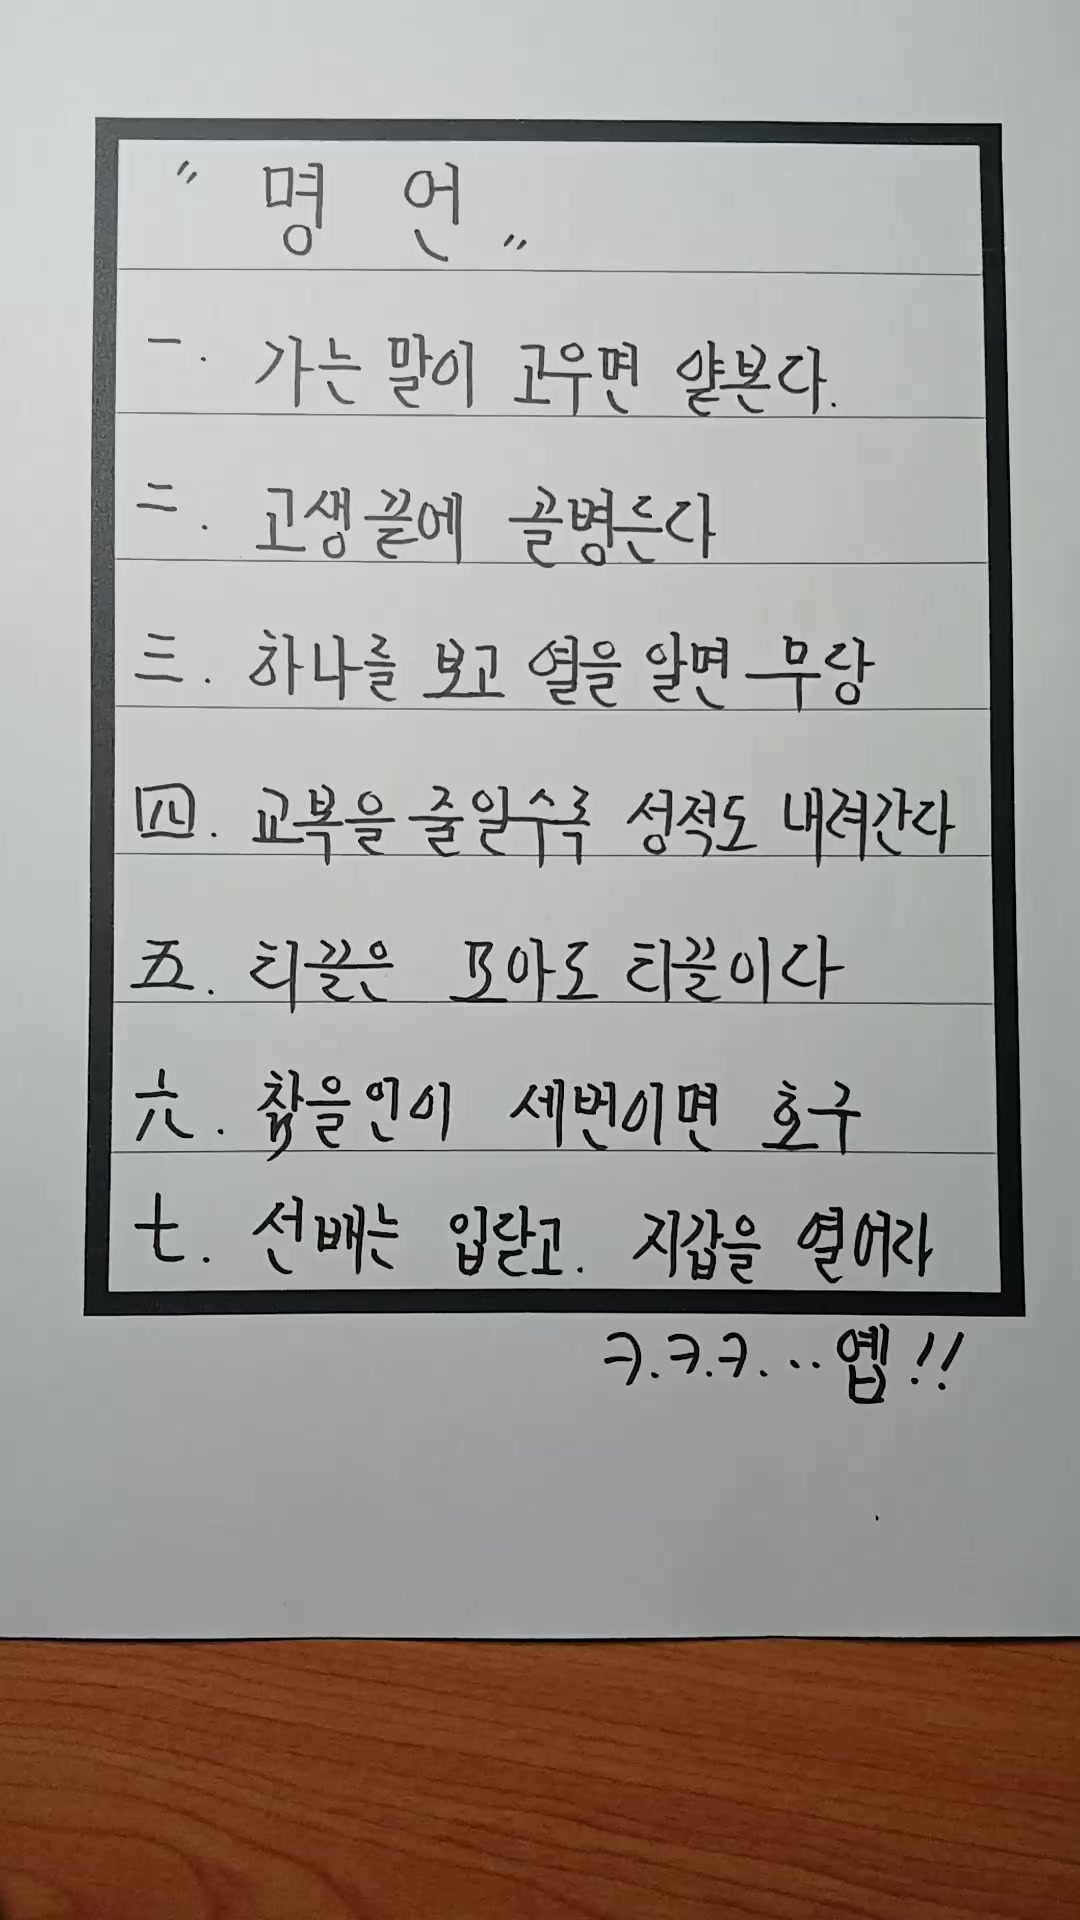 " 명 언 "
一. 가는 말이 고우면 얕본다.
二. 고생끝에 골병든다
三. 하나를 보고 열을 알면 무당
四. 교복을 줄일수록 성적도 내려간다
五. 티끌은 모아도 티끌이다
六. 참을인이 세번이면 호구
七. 선배는 입닫고. 지갑을 열어라
ㅋ.ㅋ.ㅋ... 옙!!